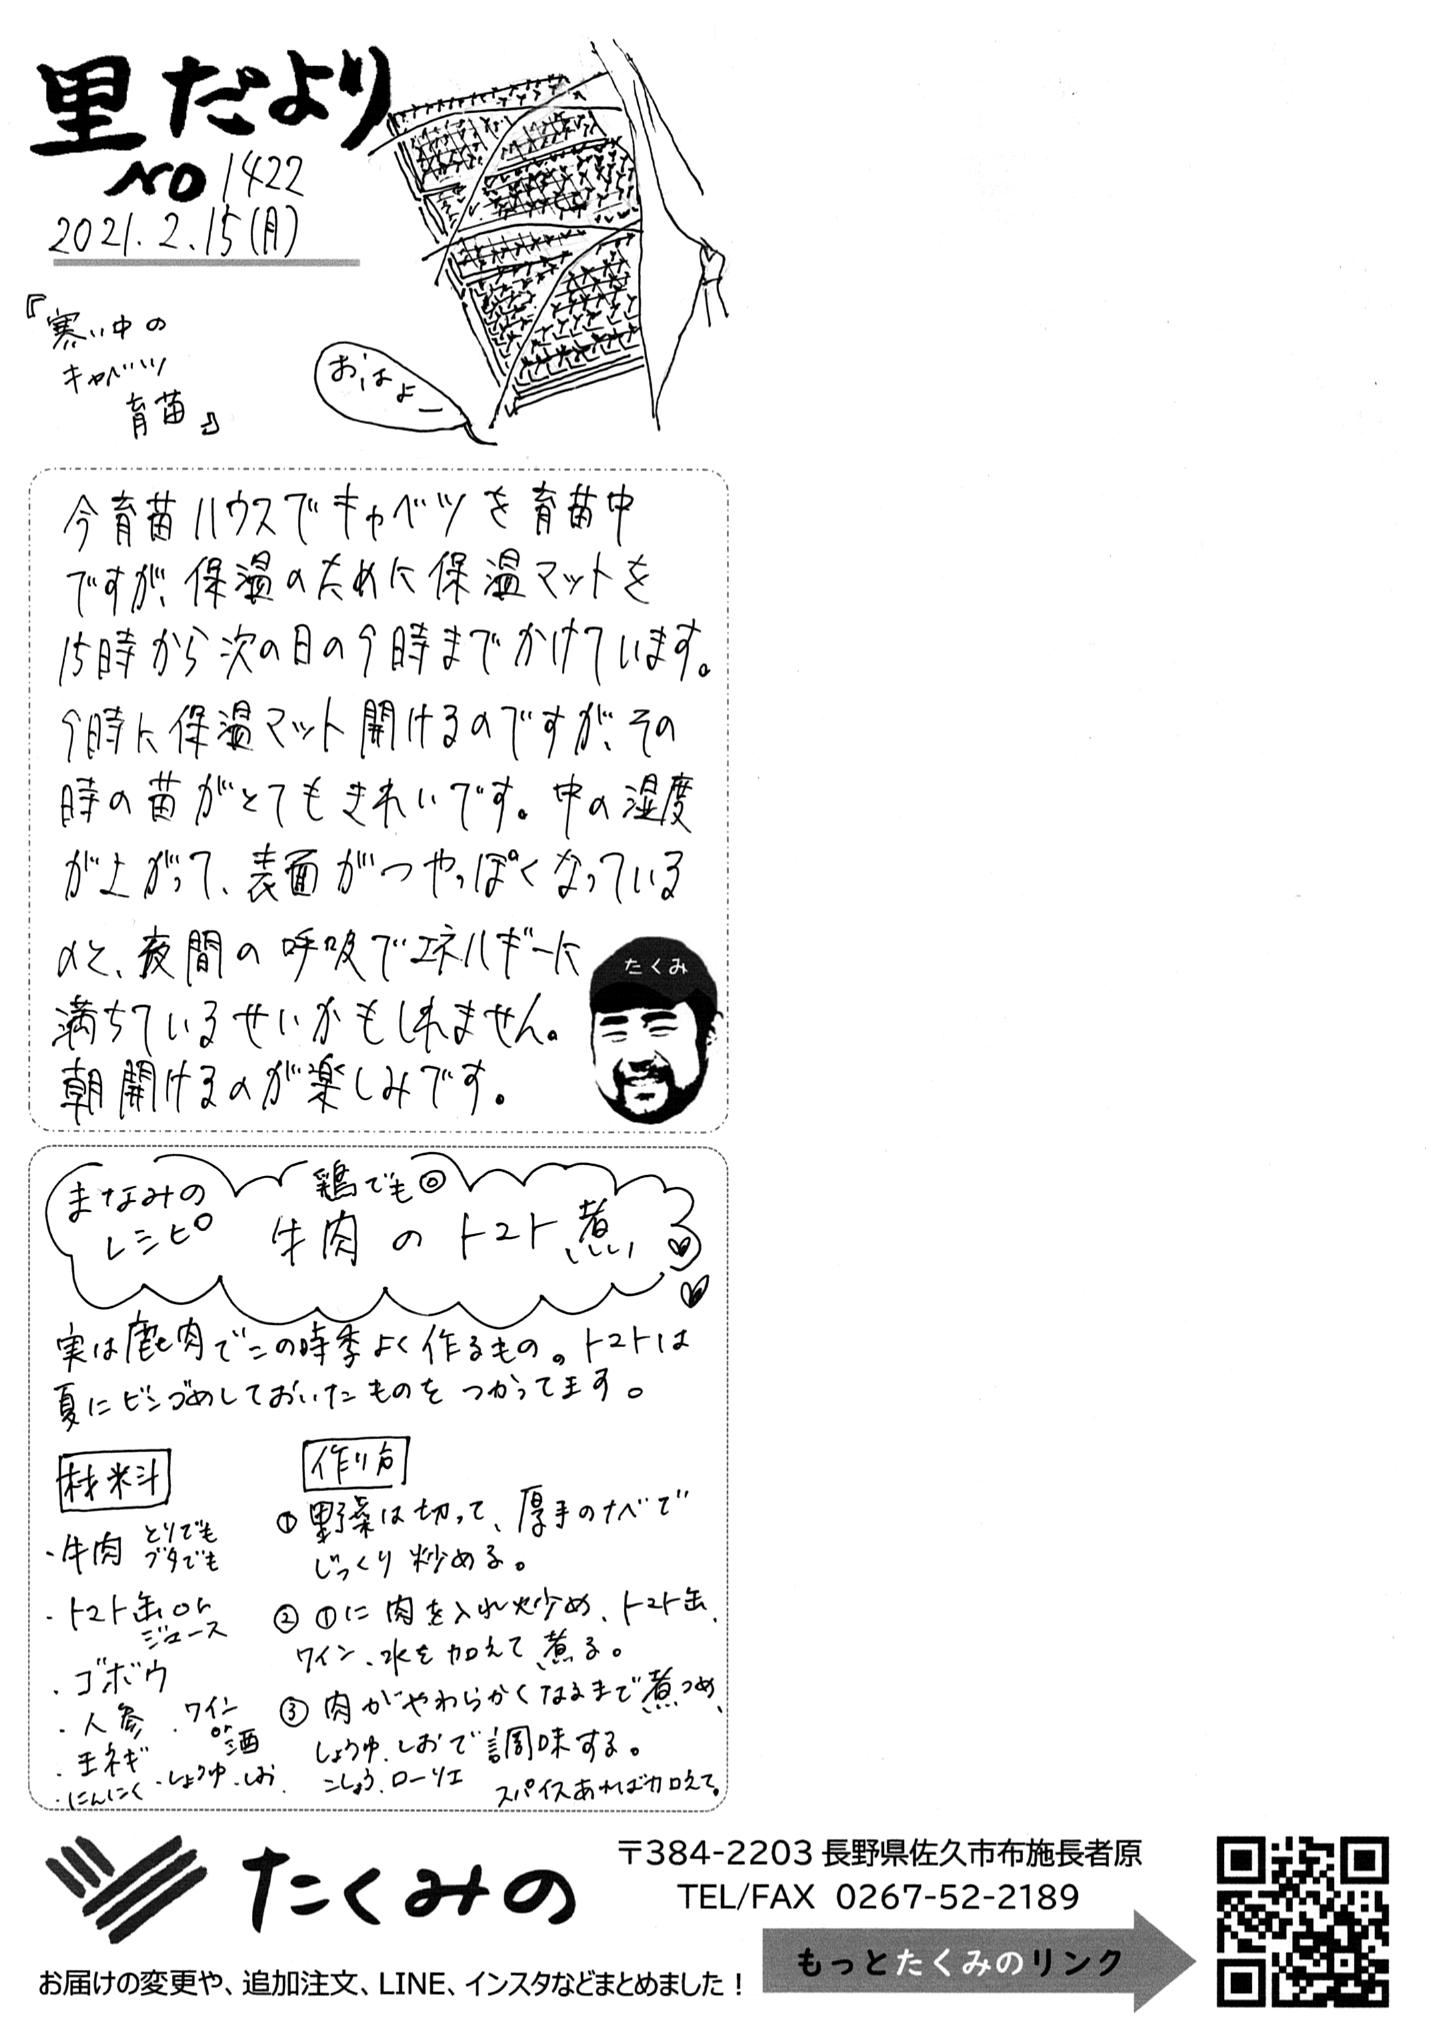 里だより
NO 1422
2021.2.15(月)
『寒い中の
キャベツ
育苗』
おはよー
今育苗ハウスでキャベツを育苗中
ですが、保温のために保温マットを
15時から次の日の9時までかけています。
9時に保温マット開けるのですが、その
時の苗がとてもきれいです。中の湿度
が上がって、表面がつやっぽくなっている
のと、夜間の呼吸でエネルギーに
満ちているせいかもしれません。
朝開けるのが楽しみです。
たくみ
まなみの
レシピ
鶏でも◎
牛肉のトマト煮
実は鹿肉でこの時季よく作るもの。トマトは
夏にビンづめしておいたものをつかってます。
材料
・牛肉 とりでも
ブタでも
・トマト缶or
ジュース
・ゴボウ
・人参 ・ワイン
or
酒
・玉ネギ
・にんにく ・しょうゆ ・しお
作り方
① 野菜は切って、厚手のナベで
じっくり炒める。
② ①に肉を入れ炒め、トマト缶、
ワイン、水を加えて煮る。
③ 肉がやわらかくなるまで煮つめ、
しょうゆ、しおで調味する。
こしょう、ローリエ スパイスあれば加えて。
たくみの
〒384-2203 長野県佐久市布施長者原
TEL/FAX 0267-52-2189
もっとたくみのリンク
お届けの変更や、追加注文、LINE、インスタなどまとめました！